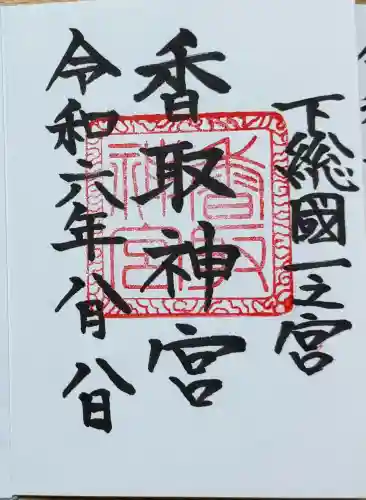 下総國一之宮
香取神宮
令和六年八月八日
香取
神宮